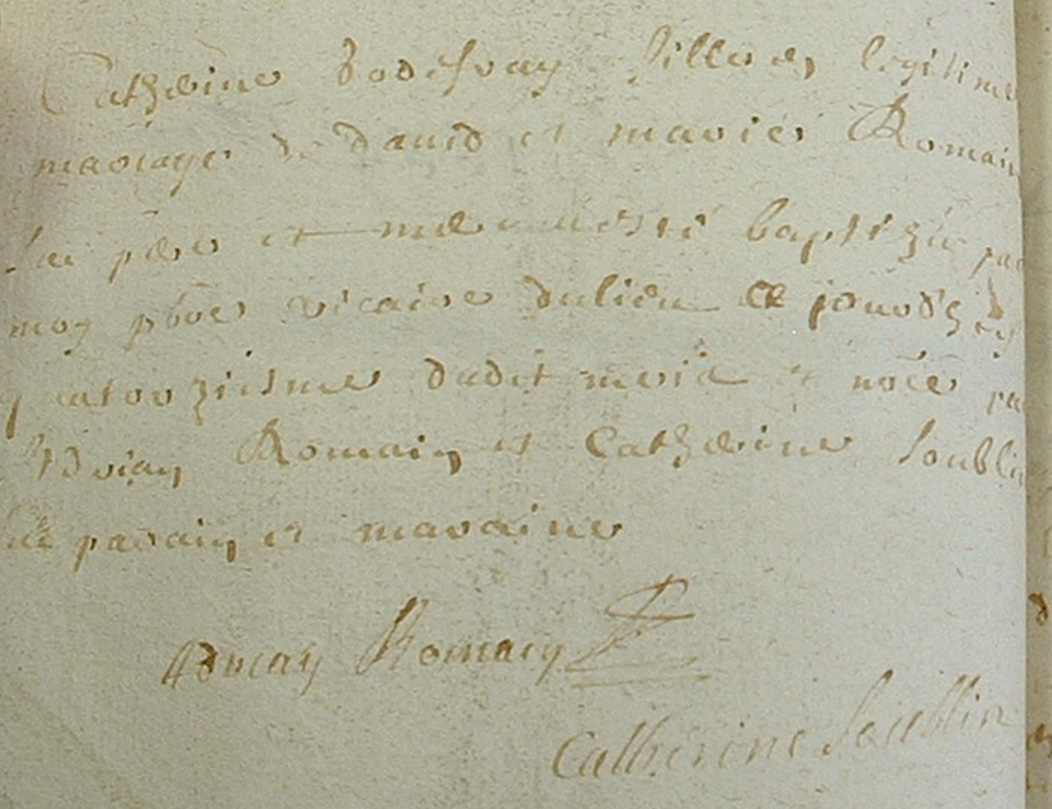 Catherine Dodesray fille de legitime
mariage de david et mariei Romain
ses pere et mere a esté baptizée par
moy pbre vicaire dulieu ce jourdhuy
quatorziesme dudit mois et nōée par
Adrian Romain et Catherine Soublin
ses parain et maraine
Adrian Romain
Catherine Soublin